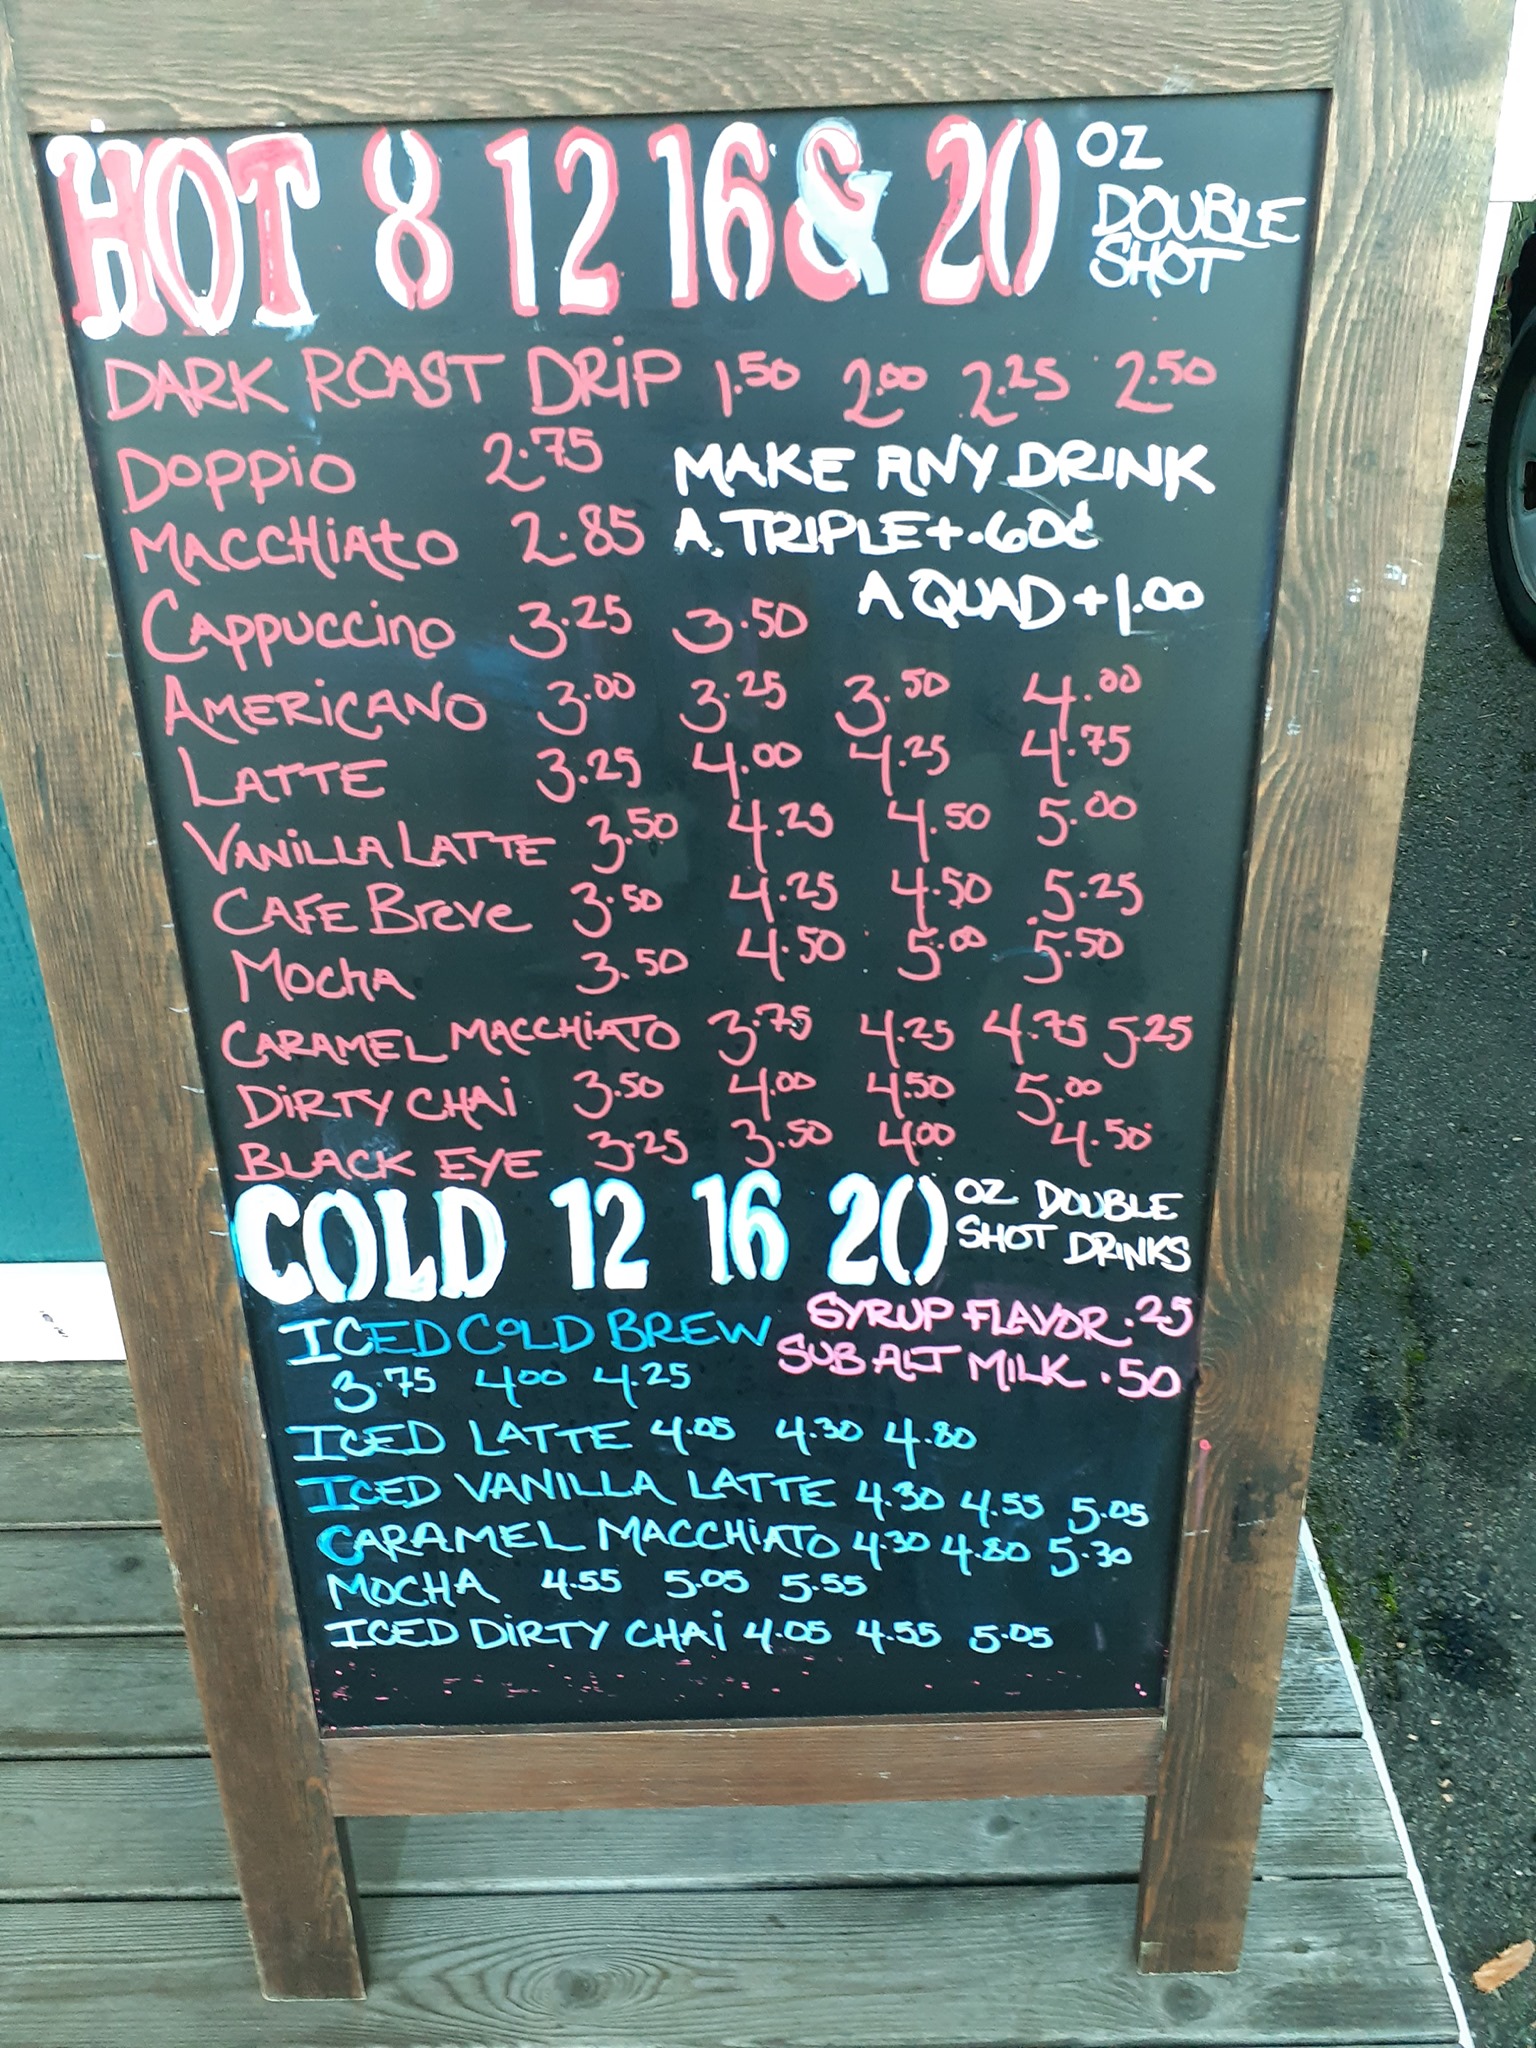 HOT 8 12 16 & 20 OZ DOUBLE SHOT
DARK ROAST DRIP 1.50 2.00 2.25 2.50
DOPPIO 2.75
MACCHIATO 2.85
MAKE ANY DRINK
A. TRIPLE + .60¢
A QUAD + 1.00
CAPPUCCINO 3.25 3.50
AMERICANO 3.00 3.25 3.50 4.00
LATTE 3.25 4.00 4.25 4.75
VANILLA LATTE 3.50 4.25 4.50 5.00
CAFE Breve 3.50 4.25 4.50 5.25
MOCHA 3.50 4.50 5.00 5.50
CARAMEL MACCHIATO 3.75 4.25 4.75 5.25
DIRTY CHAI 3.50 4.00 4.50 5.00
BLACK EYE 3.25 3.50 4.00 4.50
COLD 12 16 20 OZ DOUBLE SHOT DRINKS
ICED COLD BREW
3.75 4.00 4.25
SYRUP FLAVOR .25
SUB ALT MILK .50
ICED LATTE 4.05 4.30 4.80
ICED VANILLA LATTE 4.30 4.55 5.05
CARAMEL MACCHIATO 4.30 4.80 5.30
MOCHA 4.55 5.05 5.55
ICED DIRTY CHAI 4.05 4.55 5.05